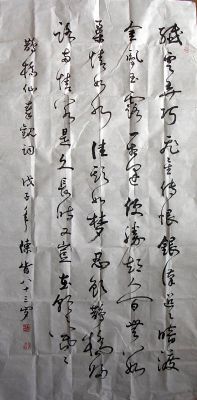 纖雲弄巧飛星傳恨銀漢迢〻暗渡
金風玉露一相逢便勝却人間無數
柔情似水佳期如梦忍顧鵲橋歸
路兩情若是久長時又豈在朝〻暮〻
鵲橋仙秦觀詞戊子年陳八十三岁